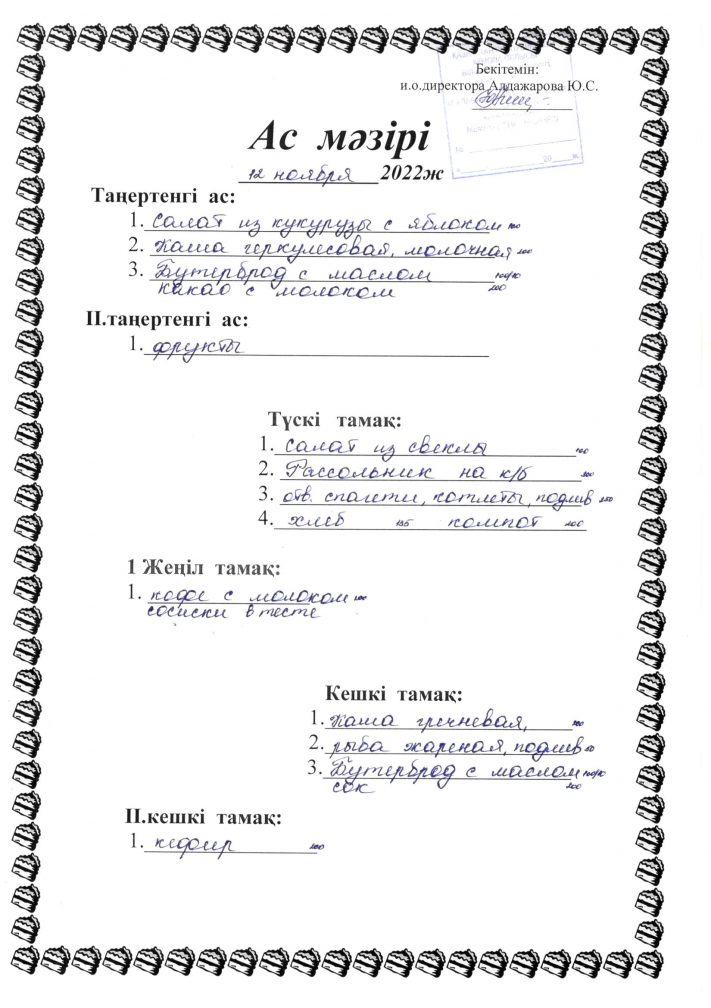 Бекітемін:
и.о.директора Алдажарова Ю.С.
Ас мәзірі
12 ноября 2022ж
Таңертенгі ас:
1. Салат из кукурузы с яблоком 100
2. Каша геркулесовая, молочная 200
3. Бутерброд с маслом 100/10
какао с молоком 200
II.таңертенгі ас:
1. фрукты
Түскі тамақ:
1. Салат из свеклы 100
2. Рассольник на к/б
3. отв. спагети, котлеты, подлив 250
4. хлеб компот 200
1 Жеңіл тамақ:
1. кофе с молоком 200
сосиски в тесте
Кешкі тамақ:
1. Каша гречневая,
2. рыба жареная, подлив
3. Бутерброд с маслом 100/10
сок 200
II.кешкі тамақ:
1. кефир 200